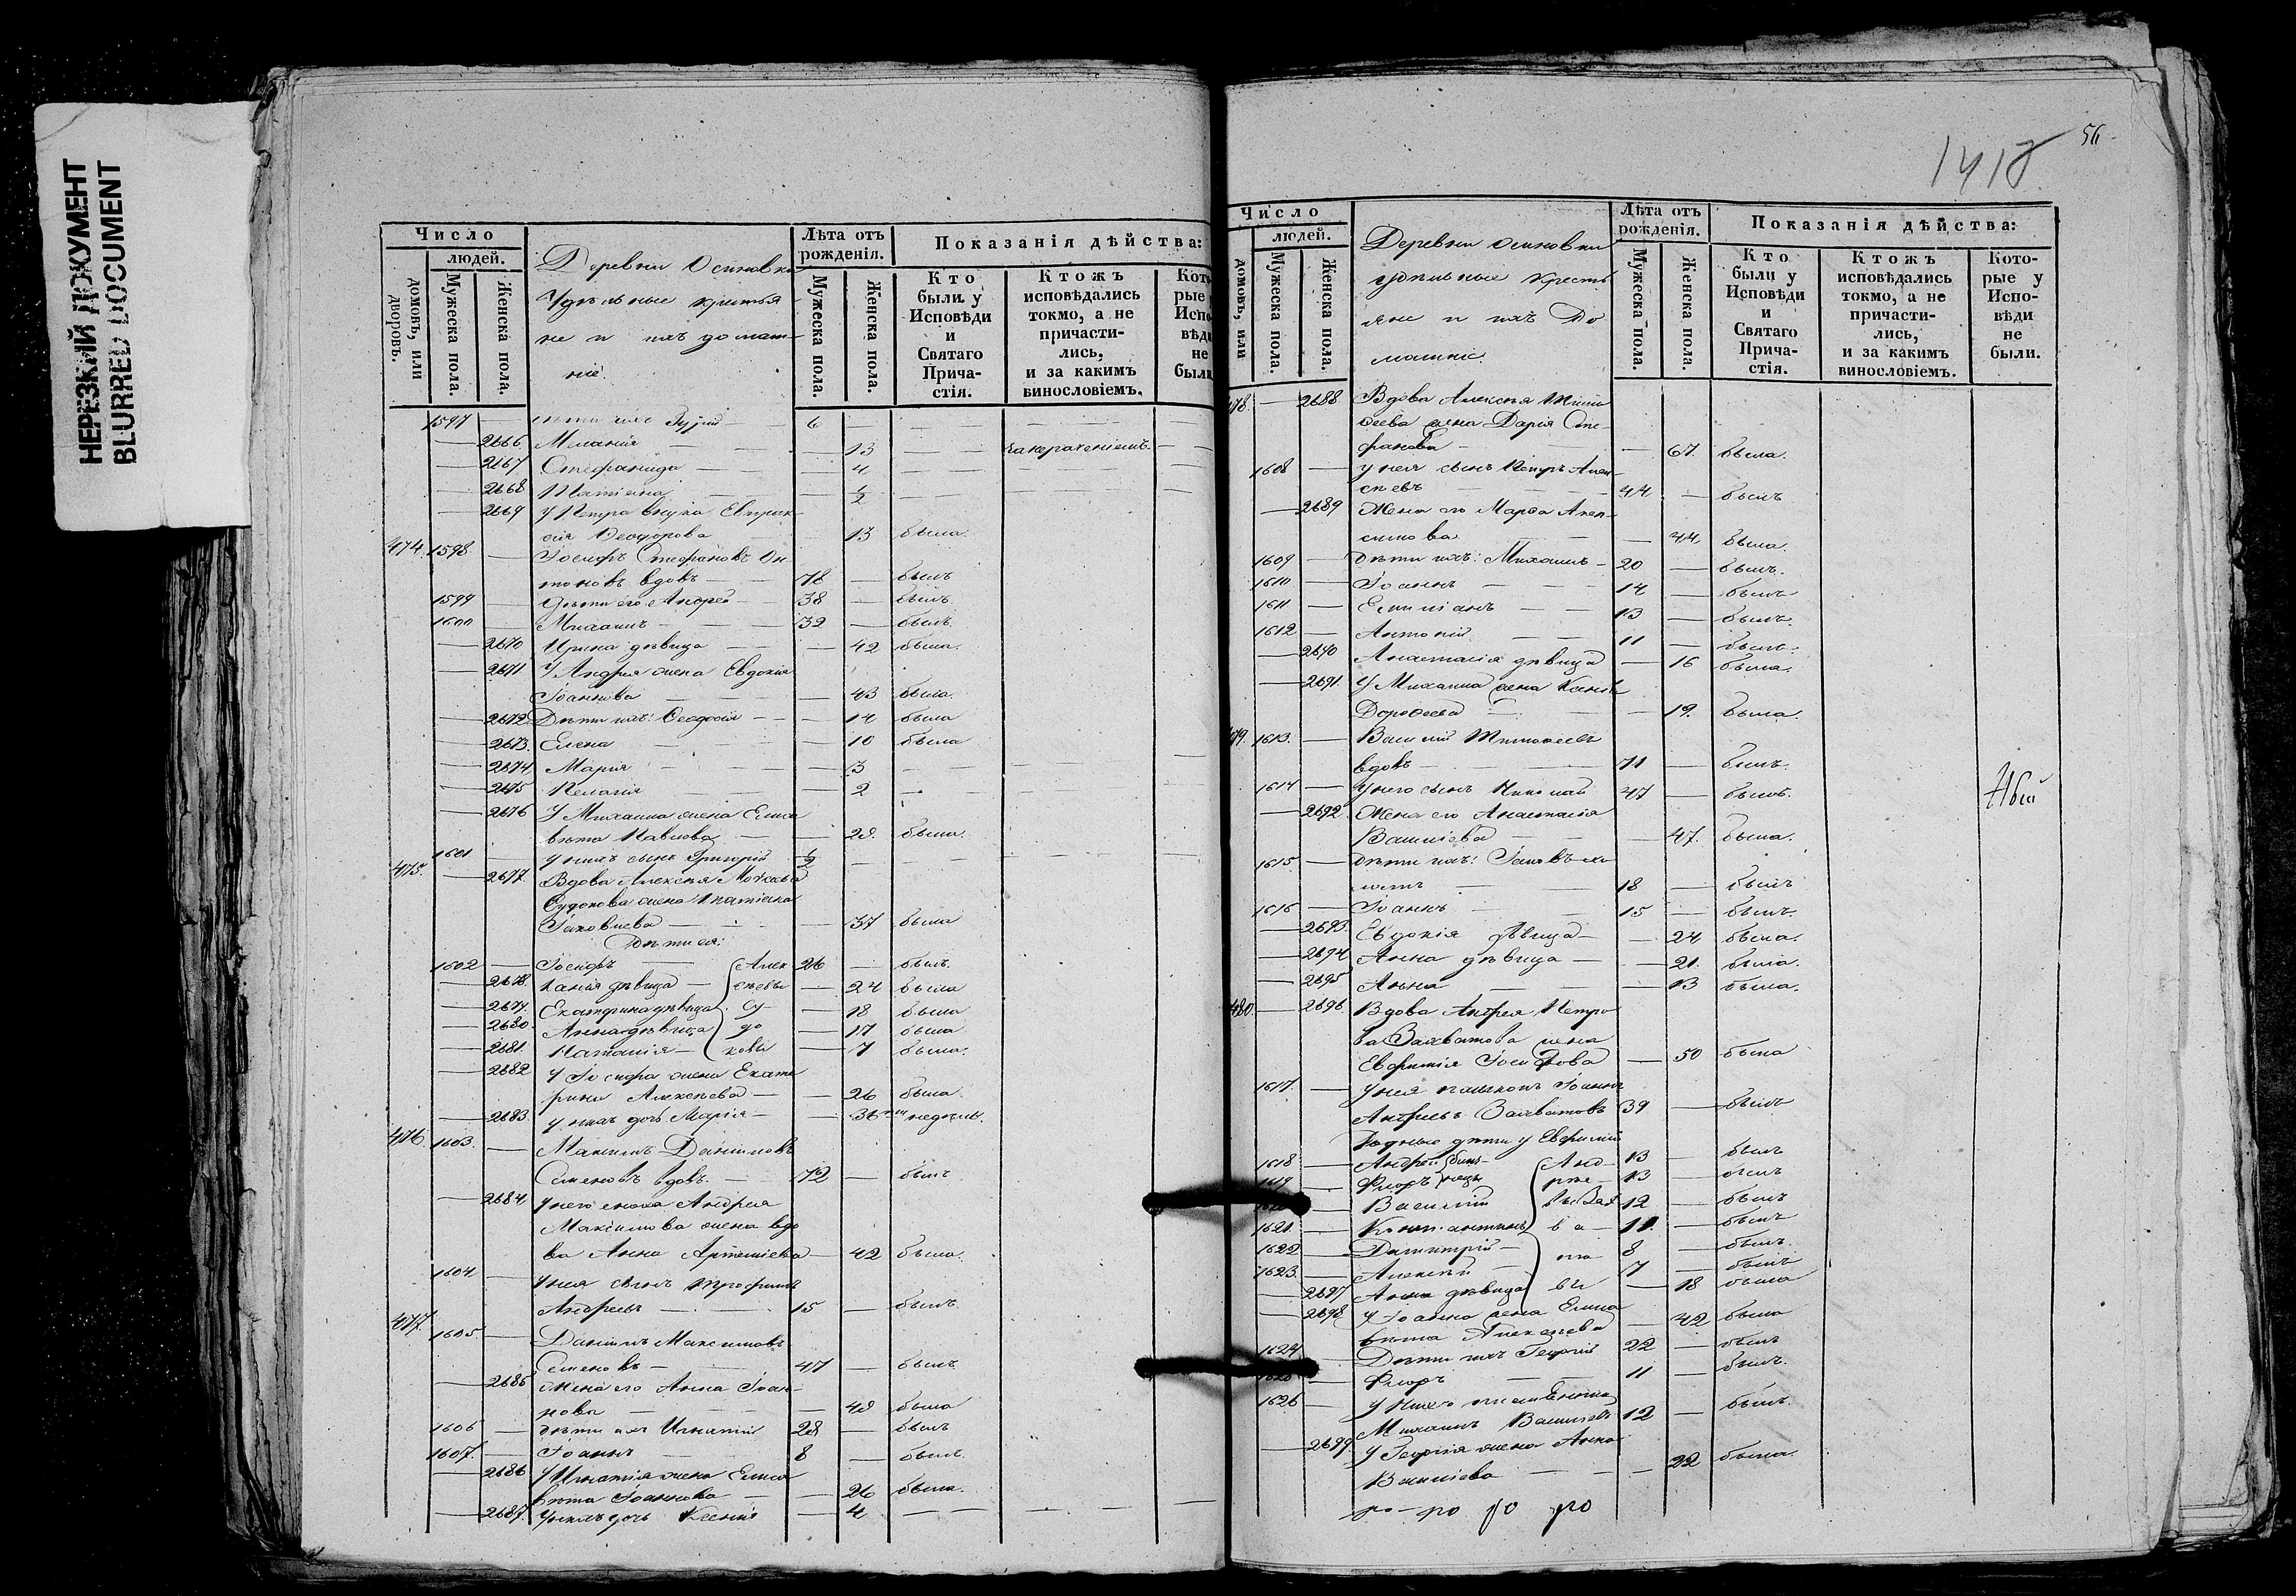 НЕРЕЗКИЙ ДОКУМЕНТ
BLURRED DOCUMENT
Число
людей.
домовъ, или дворовъ.
Мужеска пола.
Женска пола.
Деревни Осиновки
Удѣльные крестья-
не и ихъ домаш-
ніе.
Лѣта отъ рожденія.
Мужеска пола.
Женска пола.
Показанія дѣйства:
Кто были у Исповѣди и Святаго Причастія.
Ктожъ исповѣдались токмо, а не причастились, и за какимъ винословіемъ.
1597 — дѣти ихъ 6 — — —
— 2666 Меланія — 13 —
— 2667 Стефанида — 4 —
— 2668 Татіана — 1/2 —
— 2669 У Петра внука Евпрак-
сія Ѳеодорова — 13 была.
474. 1598 — Іосифъ Стефановъ Ан-
тоновъ вдовъ — 78 — былъ
1599 — Дѣти его Андрей — 38 — былъ
1600 — Михаилъ — 32 — былъ
— 2670 Ирина дѣвица — 42 была.
— 2671 У Андрея жена Евдокія
Іоаннова — 43 была.
— 2672 Дѣти ихъ: Ѳеодосія — 14 была
— 2673. Елена — 10 была
— 2674 Марія — 3 —
— 2675 Пелагія — 2 —
— 2676 У Михаила жена Елиса
вѣта Павлова — 28. была.
1601 — У нихъ сынъ Григорій 1/2 —
475. — 2677. Вдова Алексѣя
жена Татіана
Іаковлева — 37 была
Дѣти ея:
1602 — Іосифъ — Алек 26 — былъ.
— 2678. дѣвица — сѣевы — 24 была
— 2679. Екатерина дѣвица Су — 18 была
— 2680. Анна дѣвица до — 17 была
— 2681. Наталія — ковы — 7 была.
— 2682 У Іосифа жена Екате
рина Алексѣева — 26 была.
— 2683. У нихъ дочь Марія — 36 недѣль.
476. 1603. — Максимъ Даніиловъ
Семеновъ вдовъ. — 72 — былъ
— 2684 У него сноха Андрея
Максимова жена вдо
ва Анна Артемьева — 42 была.
1604 — У нея сынъ Трофимъ
Андреевъ — 15 — былъ.
477. 1605. — Даніилъ Максимовъ
Семеновъ — 47 — былъ
— 2685 Жена его Анна Іоан-
нова — 48 была
1606 — Дѣти ихъ Игнатій 28 — былъ
1607. — Іоаннъ — 8 — былъ
— 2686 У Игнатія жена Елиса
вѣта Іоаннова — 26 была.
— 2687. У нихъ дочь Ксенія — 4 —
1418
56
Число
людей.
домовъ, или
Мужеска пола.
Женска пола.
Деревни Осиновки
удѣльные кресть
яне и ихъ до
машніе.
Лѣта отъ рожденія.
Мужеска пола.
Женска пола.
Показанія дѣйства:
Кто были у Исповѣди и Святаго Причастія.
Ктожъ исповѣдались токмо, а не причастились, и за какимъ винословіемъ.
Которые у Исповѣди не были.
478. — 2688. Вдова Алексѣя Тимо
ѳеева жена Дарія Сте-
фанова — 67. была.
1608 — У нея сынъ Петръ Алек-
сѣевъ 44 — былъ
— 2689 Жена его Марѳа Алек-
сѣева — 44 была.
1609 — Дѣти ихъ: Михаилъ — 20 — былъ.
1610 — Іоаннъ — 14 — былъ
1611 — Емиліанъ — 13 — былъ.
1612 — Антоній — 11 — былъ.
— 2690 Анастасія дѣвица — 16 была.
— 2691. У Михаила жена
Дороѳеева — 19. была.
479. 1613. — Василій Тимоѳеевъ
вдовъ — 71 — былъ.
1614 — У него сынъ Николай 47 — былъ.
— 2692. Жена его Анастасія
Васильева — 47. была.
1615 — Дѣти ихъ: Іаковъ хо-
лостъ — 18 — былъ
1616 — Іоаннъ — 15 — былъ.
— 2693. Евдокія дѣвица — 24 была.
— 2694 Анна дѣвица — 21. была.
— 2695 Анна — 13 была.
480. — 2696. Вдова Андрея Петро
ва Захватова жена
Евфимія Іосифова — 50 была
1617. — У нея Іоаннъ
Андреевъ Захватовъ 39 — былъ
Родные дѣти у Евфиміи
1618 — Андрей близ- Анд- 13 — былъ
1619 — Флоръ нецы рее- 13 — былъ
— Василій вы Зах 12 — былъ
1621. — Константинъ ва- 11. — былъ
1622 — Димитрій — то 8 — былъ.
1623. — Алексѣй — 7 — былъ
— 2697 Анна дѣвица вы — 18 была
— 2698. У Іоанна жена Елиса
вѣта Алексѣева — 42 была
1624 — Дѣти ихъ Георгій 22 — былъ
— Флоръ — 11 — былъ.
1626 — У него племянникъ
Михаилъ Васильевъ 12 — былъ.
— 2699. У Георгія жена Анна
Васильева — 22 была.